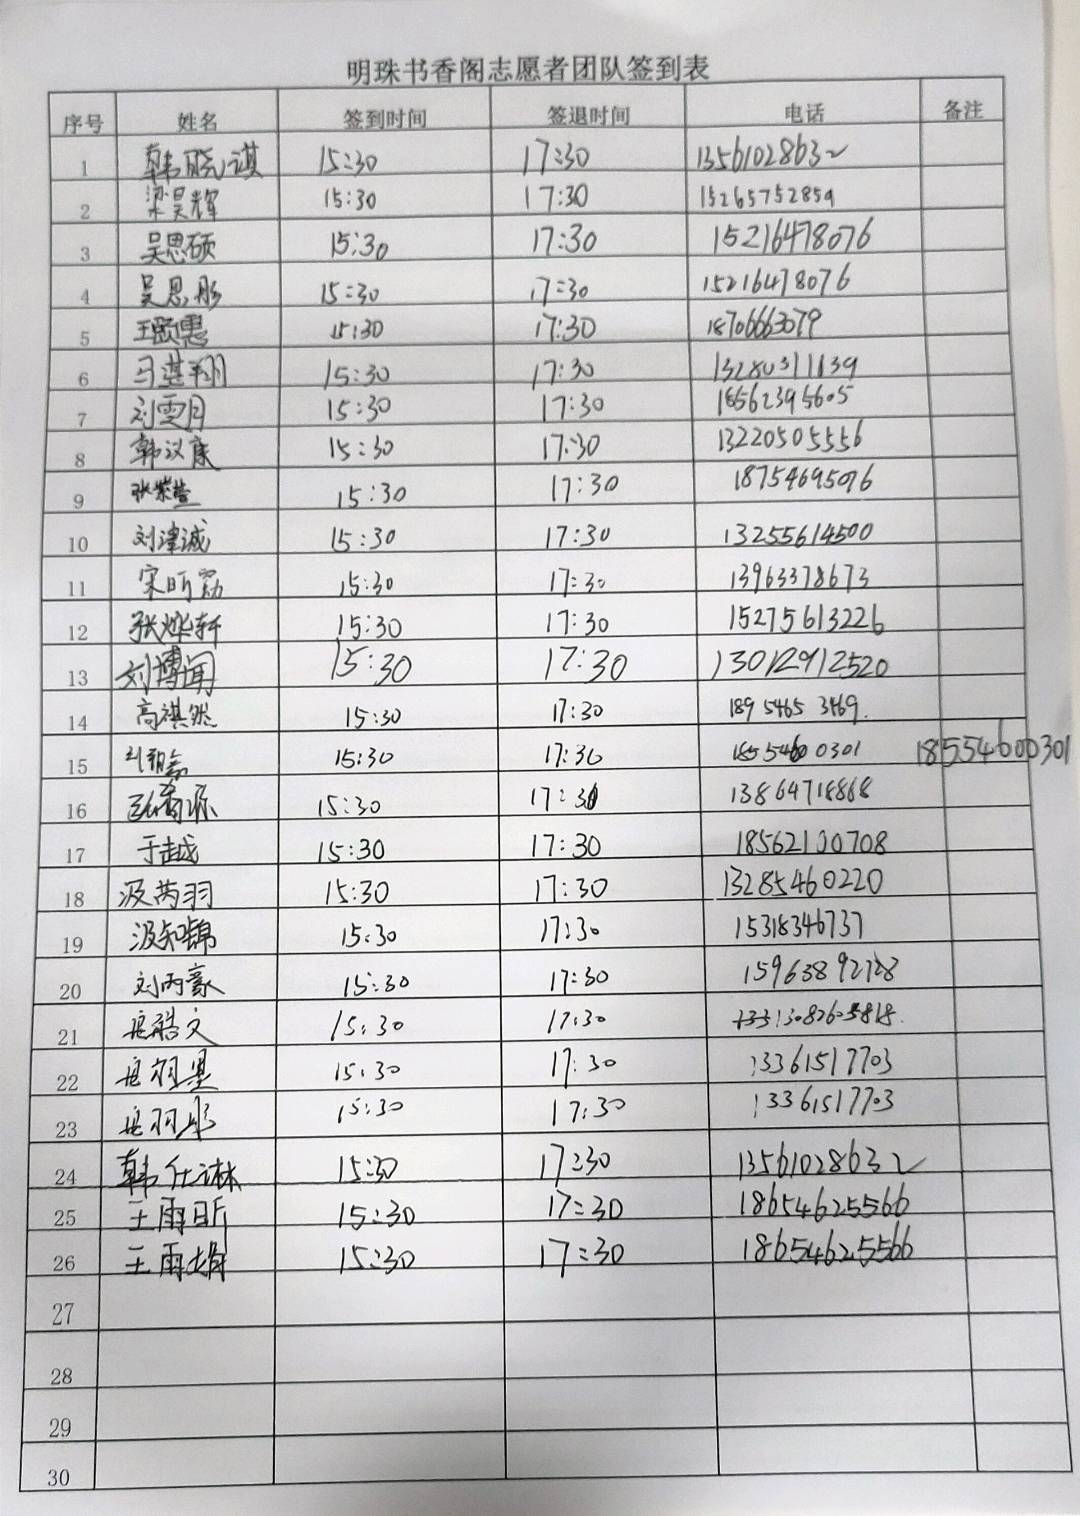 明珠书香阁志愿者团队签到表
序号 姓名 签到时间 签退时间 电话 备注
1 韩晓祺 15:30 17:30 13561028632
2 梁昊辉 15:30 17:30 15265752859
3 吴思硕 15:30 17:30 15216478076
4 吴思彤 15:30 17:30 15216478076
5 15:30 17:30 18706663079
6 马湛翔 15:30 17:30 13280311139
7 刘雯月 15:30 17:30 18562395605
8 韩议康 15:30 17:30 13220505556
9 张紫萱 15:30 17:30 18754695096
10 刘津诚 15:30 17:30 13255614500
11 宋昕励 15:30 17:30 13963378673
12 张烨轩 15:30 17:30 15275613226
13 刘博闻 15:30 17:30 13012912520
14 高祺然 15:30 17:30 189 5465 3469.
15 15:30 17:30 18554600301 18554600301
16 15:30 17:30 13864718868
17 于越 15:30 17:30 18562100708
18 汲芮羽 15:30 17:30 13285460220
19 汲知锦 15:30 17:30 15318346737
20 刘丙豪 15:30 17:30 15963892728
21 15:30 17:30 13082605818.
22 15:30 17:30 13361517703
23 15:30 17:30 13361517703
24 韩仕淋 15:30 17:30 13561028632
25 王雨昕 15:30 17:30 18654625566
26 王雨婧 15:30 17:30 18654625566
27
28
29
30